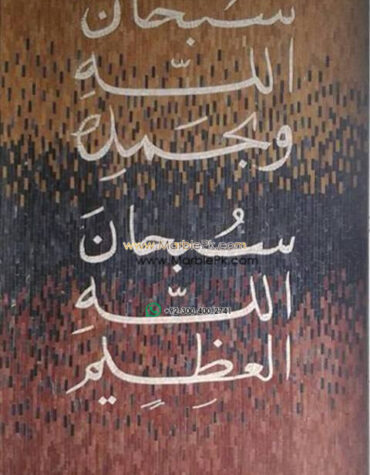 سبحان
اللّه
وبحمده
سُبحانَ
اللّهِ
العظِيمِ
www.MarblePk.com
www.MarblePk.com
+92 300 4001274